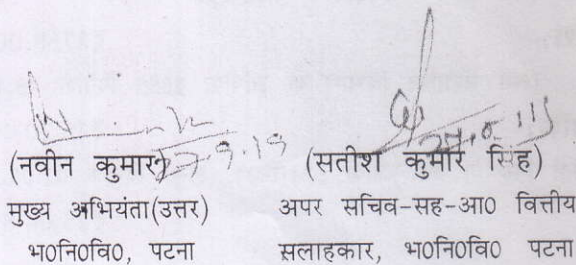 (नवीन कुमार)
मुख्य अभियंता(उत्तर)
भ0नि0वि0, पटना
(सतीश कुमार सिंह)
अपर सचिव-सह-आ0 वित्तीय
सलाहकार, भ0नि0वि0 पटना